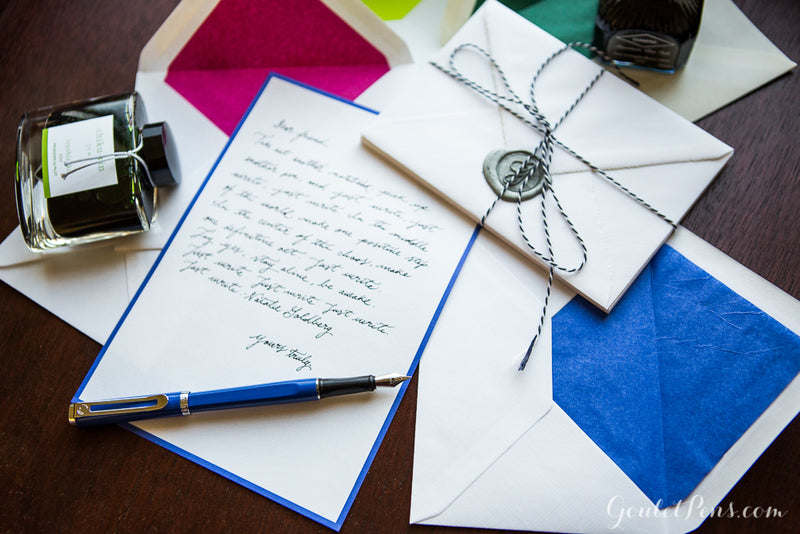 Dear friend,
Take out another notebook, pick up
another pen, and just write, just
write, just write. In the middle
of the world, make one positive step.
In the center of the chaos, make
one definitive act. Just write.
Say yes, stay alive, be awake.
Just write. Just write. Just write.
Just write. Natalie Goldberg
Yours truly,
GouletPens.com